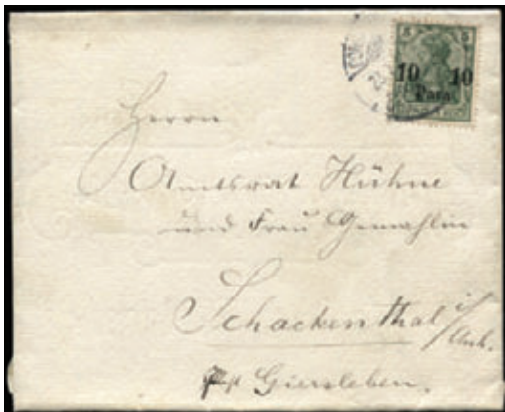 5 5
10 10
Para
Herrn
Amtsrat Hühne
und Frau Gemahlin
Schackenthal i/Anh.
Post Giersleben.